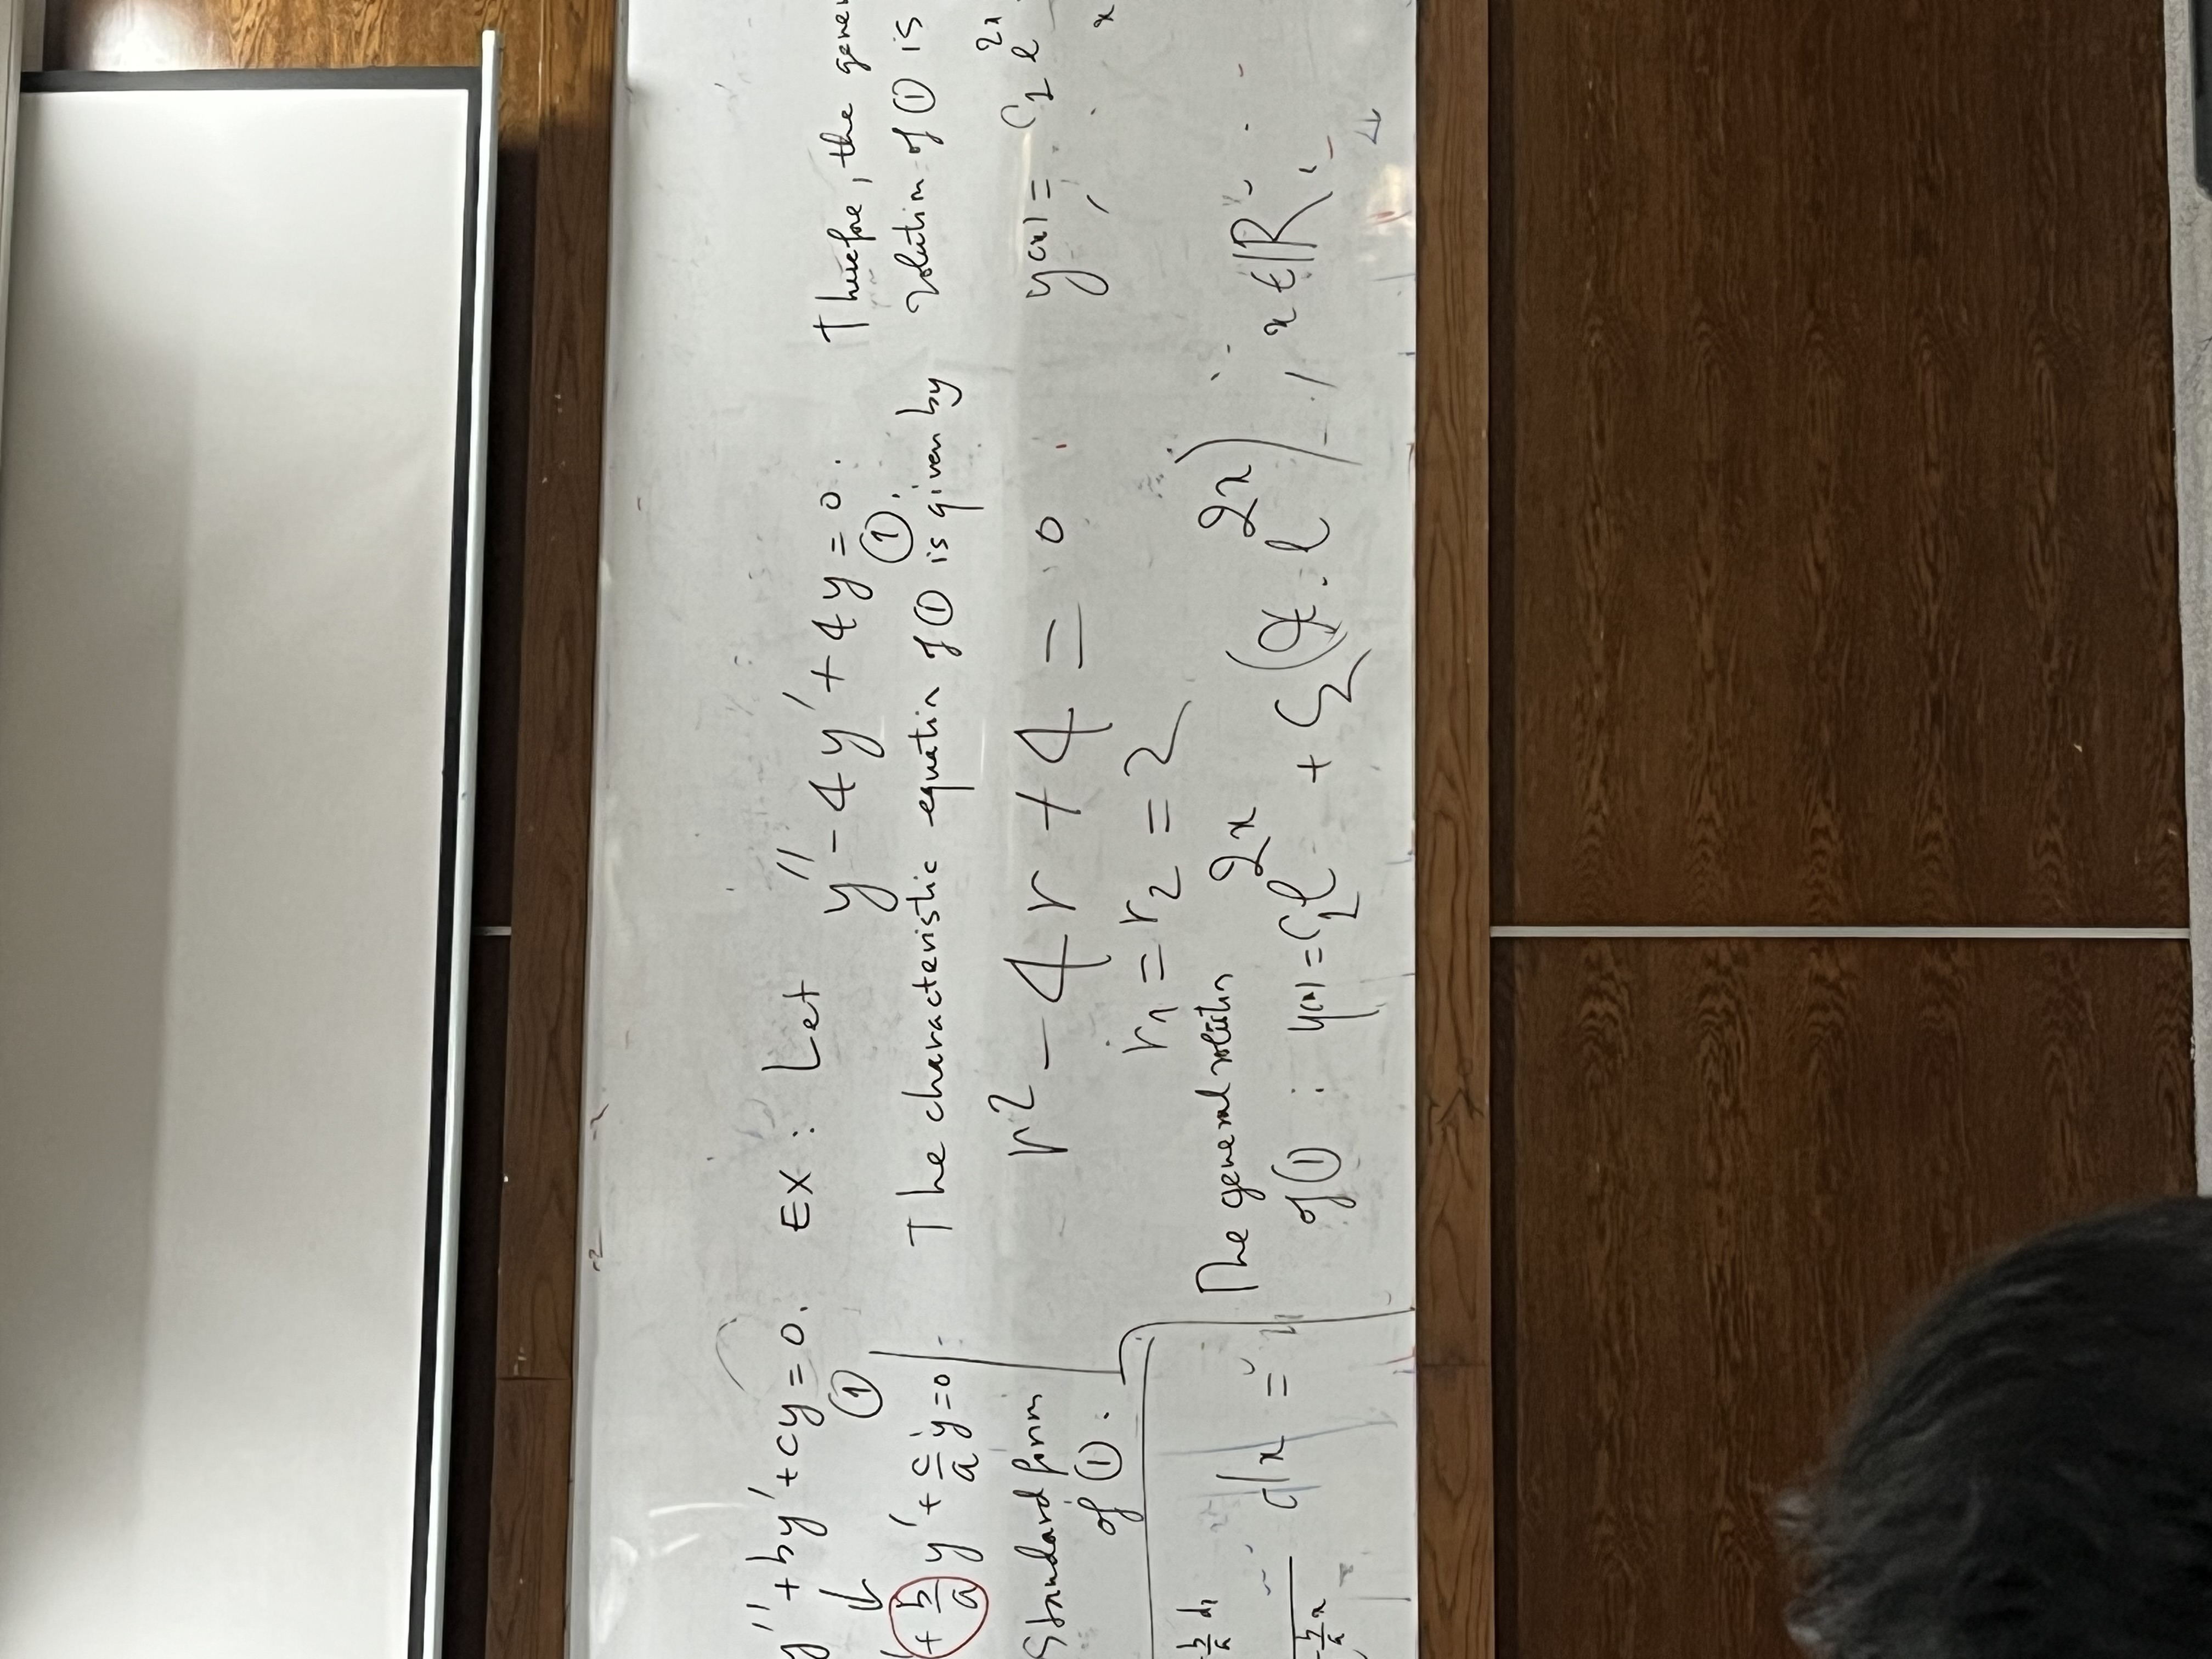 y''+by'+cy=0.
①
+ b/a y' + c/a y=0
Standard form
of ①.
b/a
dx =
-b/a x
EX : Let y''-4y'+4y=0.
①.
The characteristic equatin of ① is given by
r²-4r+4=0.
r₁=r₂=2
The general solution
of ① : y(x)=C₁e^2x + C₂(x.e^2x), x∈ℝ.
Therefore, the gener
solution of ① is
y(x)= C₁ e^2x
x